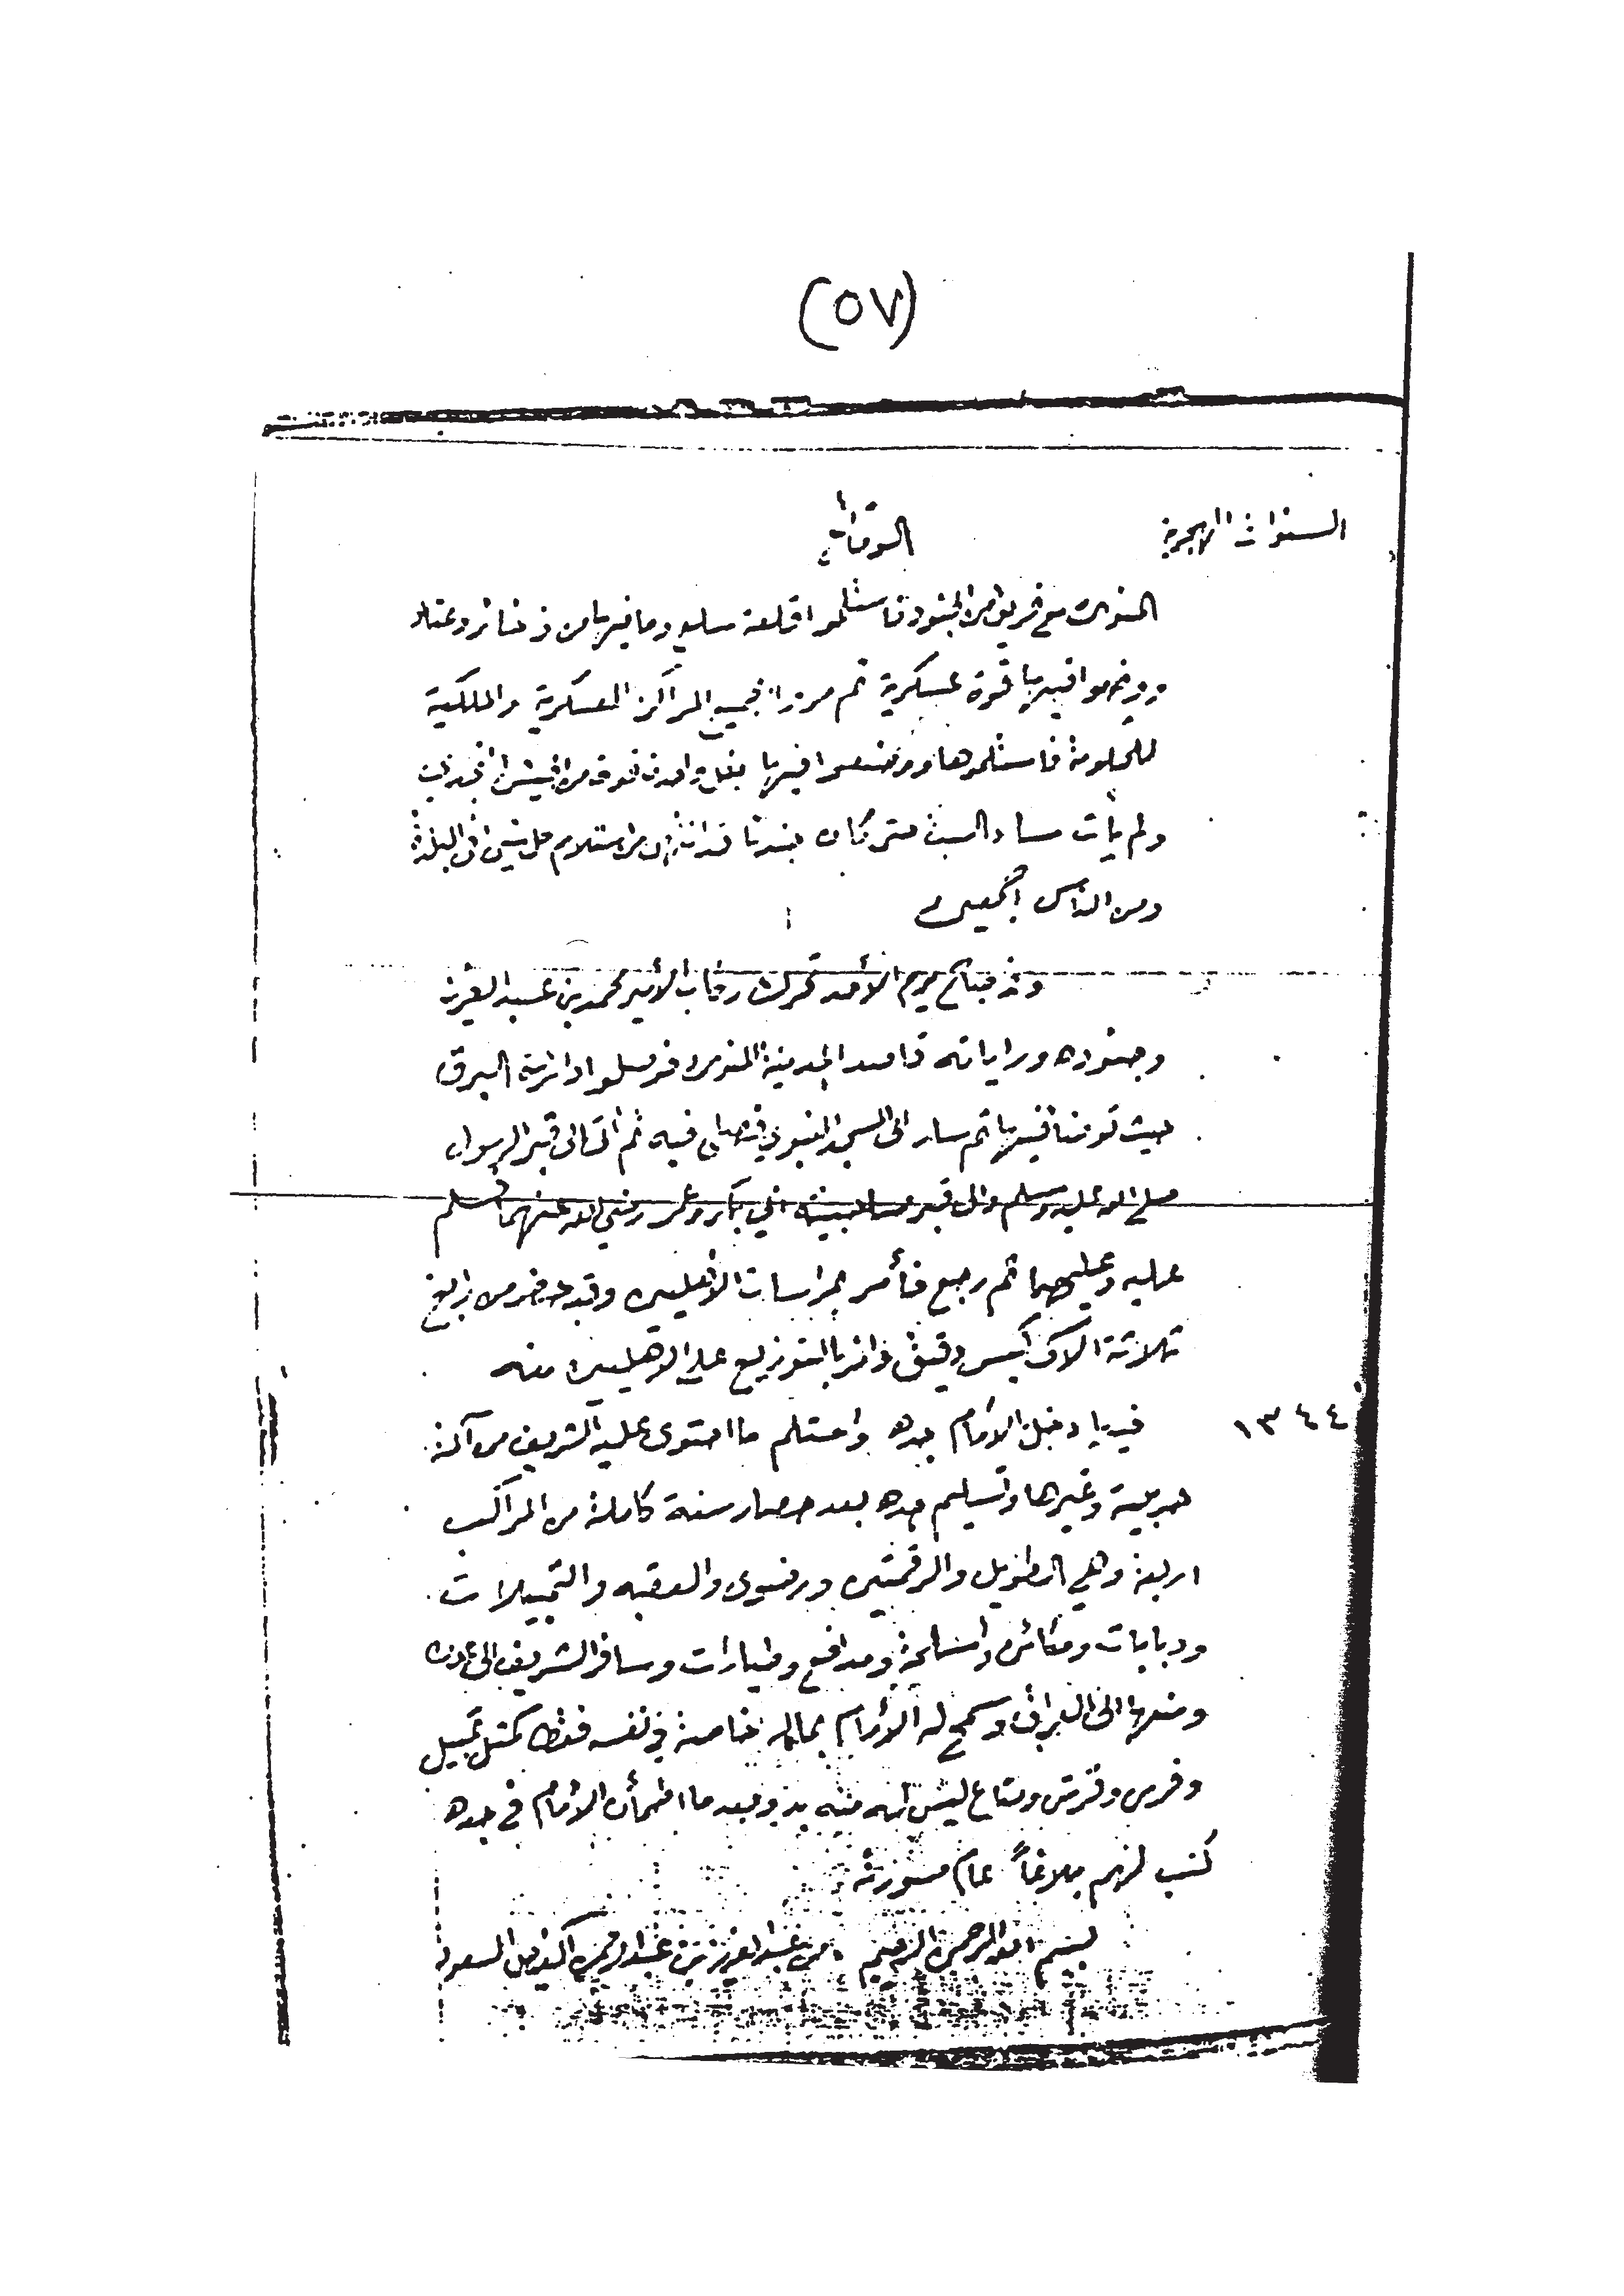 (٥٧)
السنوات الهجرية
الوقمات
المنورة مع فريق من الجنود فاستلموا قلعة سلع وما فيها من ذخائر وعتاد
ووضعوا فيها قوة عسكرية ثم مروا بجميع المراكز العسكرية والملكية
للحكومة فاستلموها ووضعوا فيها بعل واحدة قوة من الجيش النجدي
ولم يأت مساء السبت حتى كان جندنا قد انتهى من استلام كل شيئ في البلدة
ومن الناس أجمعين
وفي صباح يوم الأحد تحركت ركاب الأمير محمد بن عبد العزيز
وجنوده وراياته قاصد المدينة المنوره فوصلوا دائرة البرق
حيث توضأ فيها ثم سار الى المسجد النبوي فصلى فيه ثم أتى الى قبر الرسول
صلى الله عليه وسلم والى قبر صاحبيه أبي بكر وعمر رضي الله عنهما فسلم
عليه وعليهما ثم رجع فأمر بمراسات الأهلين وقد حضر من رابغ
ثلاثة الاف كيس دقيق وامر بالتوزيع على الاهلين منه
١٣٤٤
فيها دخل الامام جده واستلم ما احتوى عليه الشريف من آلة
حربية وغيرها وتسليم جده بعد حصار سنة كاملة من المراكب
اربعة وهي الطويل والرقمتين ورضوى والعقبه والتمبيلات
ودبابات ومكائن وأسلحة ومدافع وطيارات وسافر الشريف الى عدن
ومنها الى العراق وسمح له الأمام بماله خاصة في نفسه فقط كمثل تمبيل
وفرس وفرش ومتاع ليس له منه بد وبعد ما اطمأن الأمام في جده
كتب لهم بلاغاً عام صورته
بسم الله الرحمن الرحيم من عبد العزيز بن عبد الرحمن الفيصل السعود